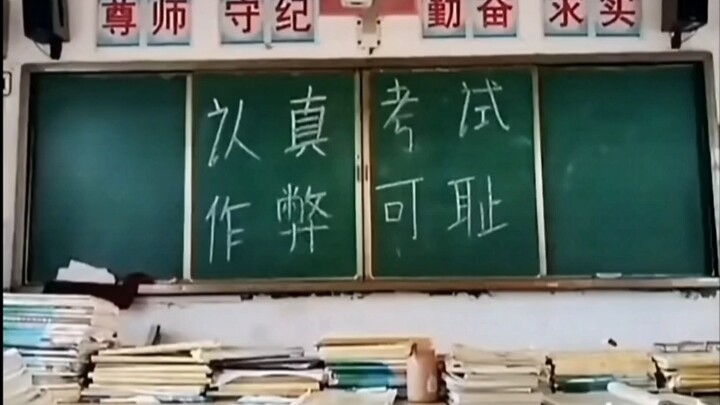 尊师 守纪 勤奋 求实
认真考试
作弊可耻